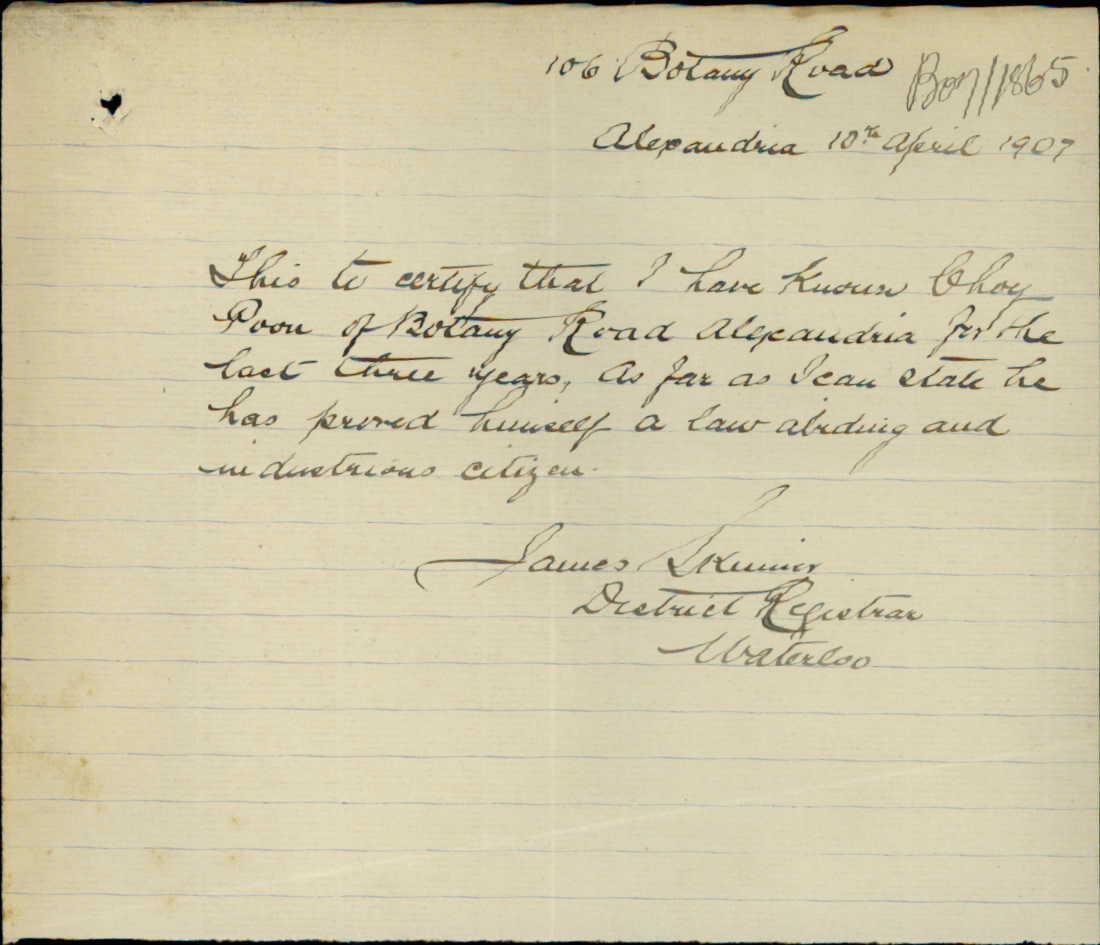 106 Botany Road
Alexandria 10th April 1907
This to certify that I have known Choy
Poon of Botany Road Alexandria for the
last three years, As far as I can state he
has proved himself a law abiding and
industrious citizen.
James Skinner
District Registrar
Waterloo